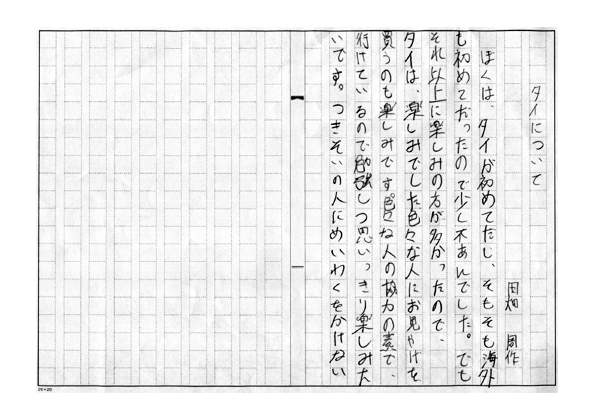 タイについて
田畑 周作
ぼくは、タイが初めてだし、そもそも海外
も初めてだったので少し不あんでした。でも
それ以上に楽しみの方が多かったので、
タイは、楽しみでした色々な人にお見やげを
買うのも楽しみです。色々な人の協力の素で、
行けているので感謝しつつ思いっきり楽しみた
いです。つきそいの人にめいわくをかけない
20×20